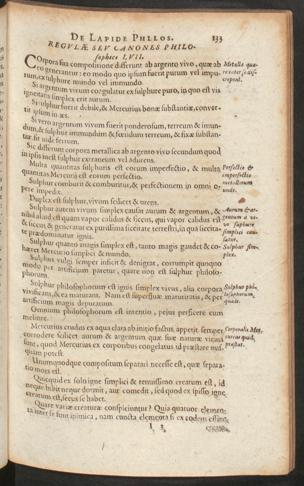 DE LAPIDE PHLOS. 133
REGVLÆ SEV CANONES PHILO-
sophici LVII.
Corpora sua compositione differunt ab argento vivo, quæ ab
eo generantur: eo modo quo ipsum fuerit purum vel impu-
rum, ex sulphure mundo vel immundo.
Si argentum vivum coagulatur ex sulphure puro, in quo est vis
igneitatis simplex erit aurum.
Si sulphur fuerit debile, & Mercurius bonæ substantiæ, conver-
tit ipsum in æs.
Si vero argentum vivum fuerit ponderosum, terreum & immun-
dum, & sulphur immundum & fœtidum terreum, & fixæ substan-
tiæ fit inde ferrum.
Sic differunt corpora metallica ab argento vivo secundum quod
in ipsis inest sulphur extraneum vel adurens.
Multa quantitas sulphuris est eorum imperfectio, & multa
quantitas Mercurii est eorum perfectio.
Sulphur comburit & comburitur, & perfectionem in omni o-
pere impedit.
Duplex est sulphur, vivum scilicet & urens.
Sulphur autem vivum simplex causat aurum & argentum, &
nihil aliud est quam vapor calidus & siccus, qui vapor calidus est
& siccus, & generatur ex purissima siccitate terrestri, in qua siccita-
te prædominatur ignis.
Sulphur quanto magis simplex est, tanto magis gaudet & co-
hæret Mercurio simplici & mundo.
Sulphur vulgi semper inficit & denigrat, corrumpit quoque
modo per artificium paretur, quare non est sulphur philoso-
phorum.
Sulphur philosophorum est ignis simplex vivus, alia corpora
vivificans, & ea maturans. Nam est superfluæ maturitatis, & per
artificium magis depuratum.
Omnium philosophorum est intentio, pejus perficere cum
meliore.
Mercurius crudus ex aqua clara ab initio factus, appetit semper
corrodere scilicet aurum & argentum quæ suæ naturæ vicina
sunt, quod Mercurius ex corporibus congelatus id præstare nus-
quam potest.
Unumquodque compositum separari necesse est, quæ separa-
tio mors est.
Quicquid ex solo igne simplici & tenuissimo creatum est, id
neque habitat neque dormit, aut comedit, sed quod ex ipsis igne
creatum est, secus se habet.
Quare variæ creaturæ conspiciuntur? Quia quatuor elemen-
ta inter se sunt inimica, nam cuncta elementa si ex eodem essent,
I 3
Perfectio &
imperfectio
metallorum
unde.
Aurum & ar-
gentum
sulphure
simplici
Sulphur sim-
plex.
Sulphur phi-
losophorum,
quid.